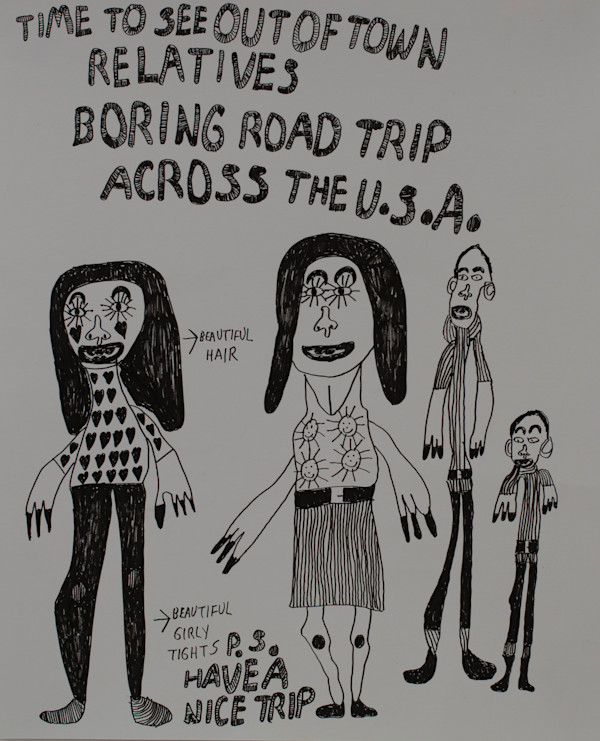 TIME TO SEE OUT OF TOWN
RELATIVES
BORING ROAD TRIP
ACROSS THE U.S.A.
→BEAUTIFUL
HAIR
→BEAUTIFUL
GIRLY
TIGHTS
P.S.
HAVE A
NICE TRIP